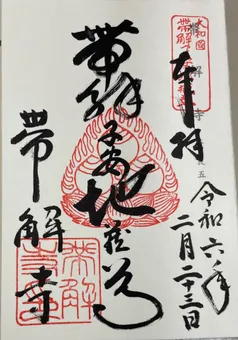 奉拝
令和六年
二月二十三日
帯解子安地蔵尊
帯解寺
帯解寺印